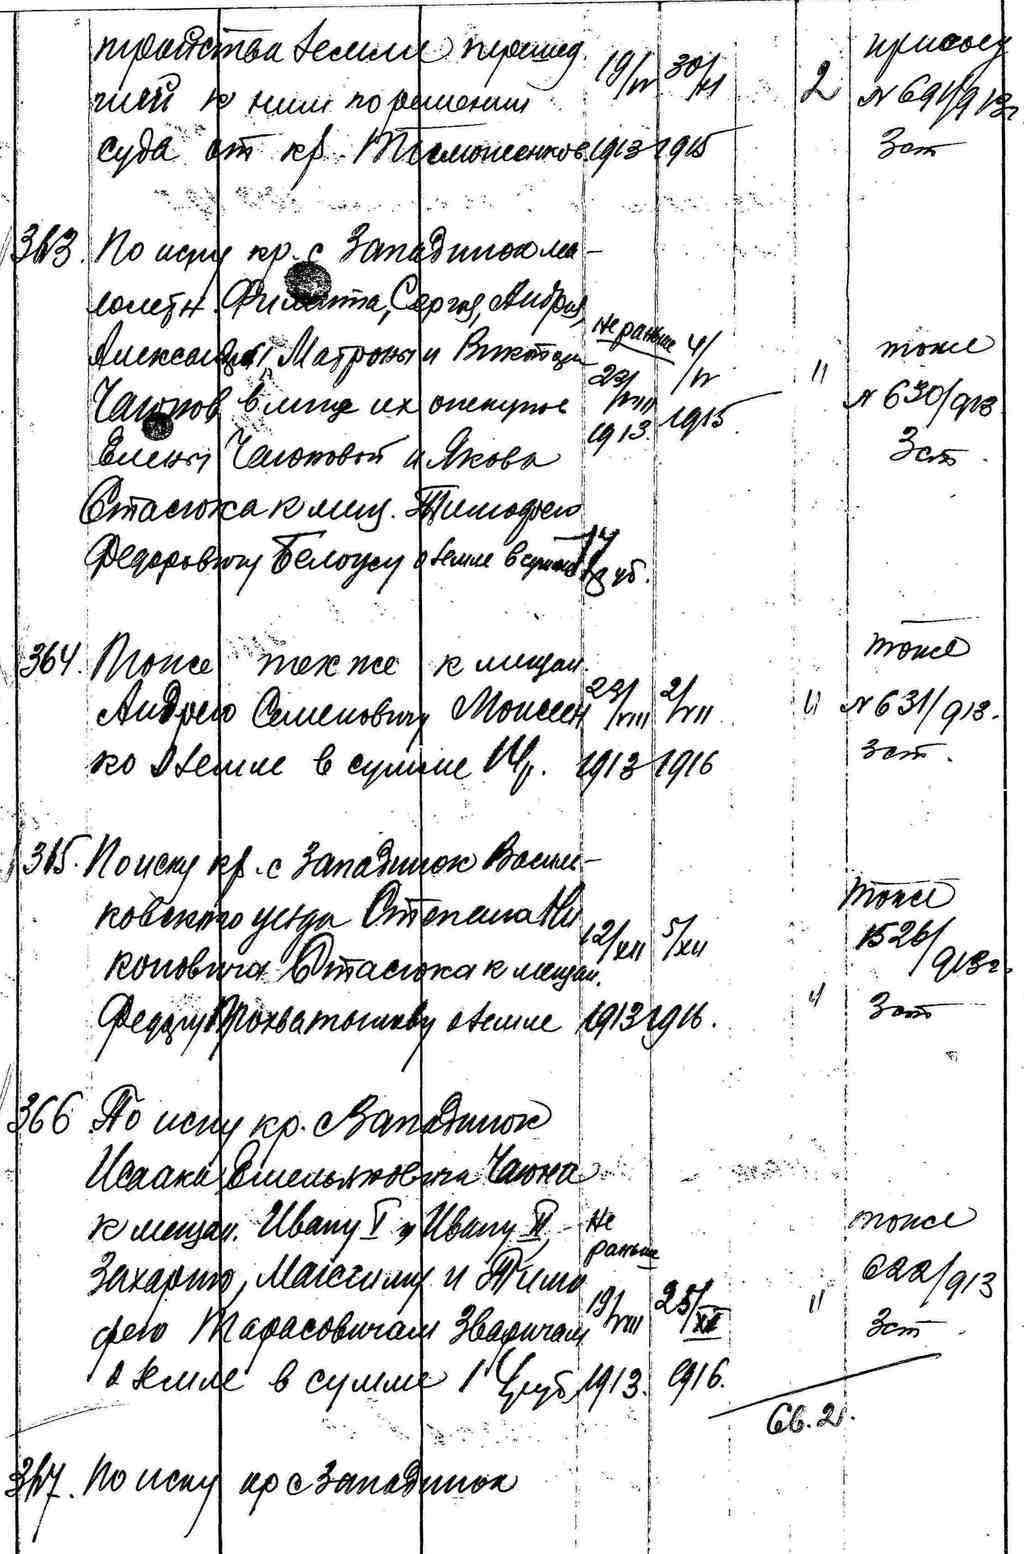 земли перешед- 19/IV 30/XI присоед
шей к ним по решению 2 № 691/913г
суда от кр. 1913 1915 3 ст
363. По иску кр. с Западинок ма-
лолетн. Филиппа, Сергея, Андрея,
Александры, Матроны и Виктории не раньше 4/IV " тоже
Чаюнов в лице их опекунов 23/VIII 1915 № 630/913
Елены Чаюновой и Якова 1913. 3 ст.
Стасюка к мещ. Тимофею
Федоровичу Белоусу о земле в сумме руб.
364. Тоже тех же к мещан. тоже
Андрею Семеновичу Моисеен 23/VIII 2/VII " № 631/913.
ко о земле в сумме 1913 1916 3 ст.
365. По иску кр. с Западинок Василь-
ковского уезда Степана Ни 12/XII 5/XII тоже
коновича Стасюка к мещан. 1526/913г.
Федору о земле 1913 1916. " 3 ст
366 По иску кр. с Западинок
Исаака Емельяновича Чаюна
к мещан. Ивану I и Ивану II, Не тоже
Захарию, Максиму и Тимо раньше 622/913
фею Тарасовичам Зваричам 19/VIII 25/XI " 3 ст.
о земле в сумме руб. 1913. 1916.
Св. 2.
367. По иску кр с Западинок